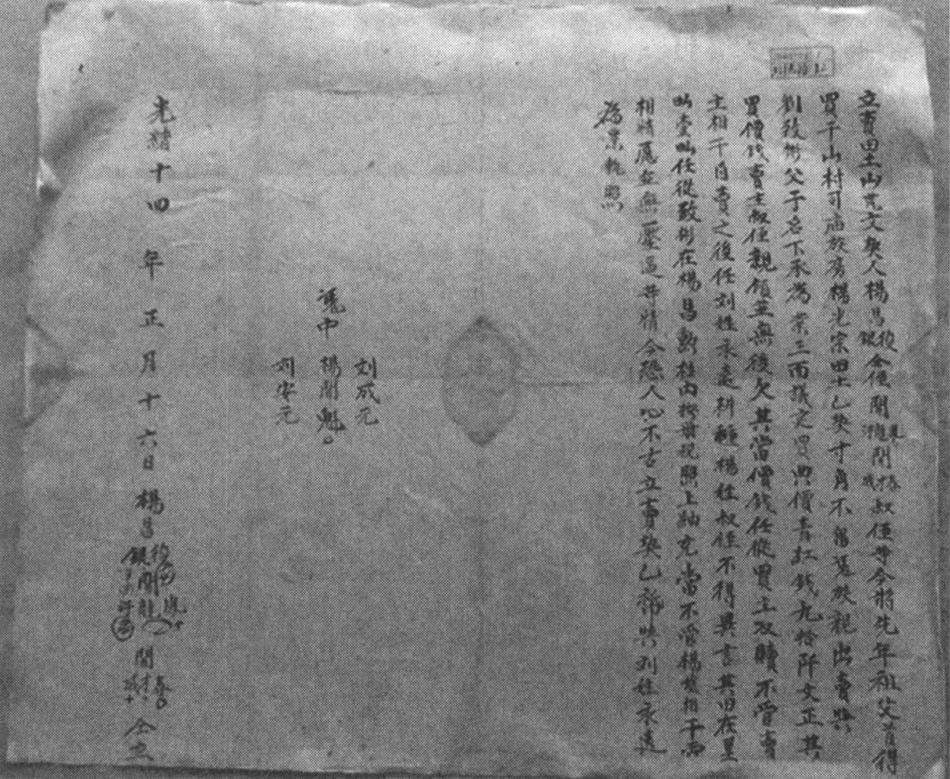 立賣田土山荒文契人楊昌後銀仝侄開龍開春叔侄等今將先年祖父首得
買千山村司庙放房楊光宗田土乙契寸角不留憑放親出賣與
刘致彬父子名下承為業三面議定買典價青紅钱九拾阡文正其
買價钱賣主叔侄親領並無後欠其當價钱任從買主双贖不管賣
主相干自賣之後任刘姓永遠耕種楊姓叔侄不得異言其田在呈
出壹出任從致彬在楊昌勳柱內按前税照上納充當不管楊姓相干两
相情愿並無壓逼等情今恐人心不古立賣契乙紙與刘姓永遠
為業執照
刘成元
憑中 楊開魁
刘安元
光緒十四年正月十六日楊昌後銀開龍開春仝立